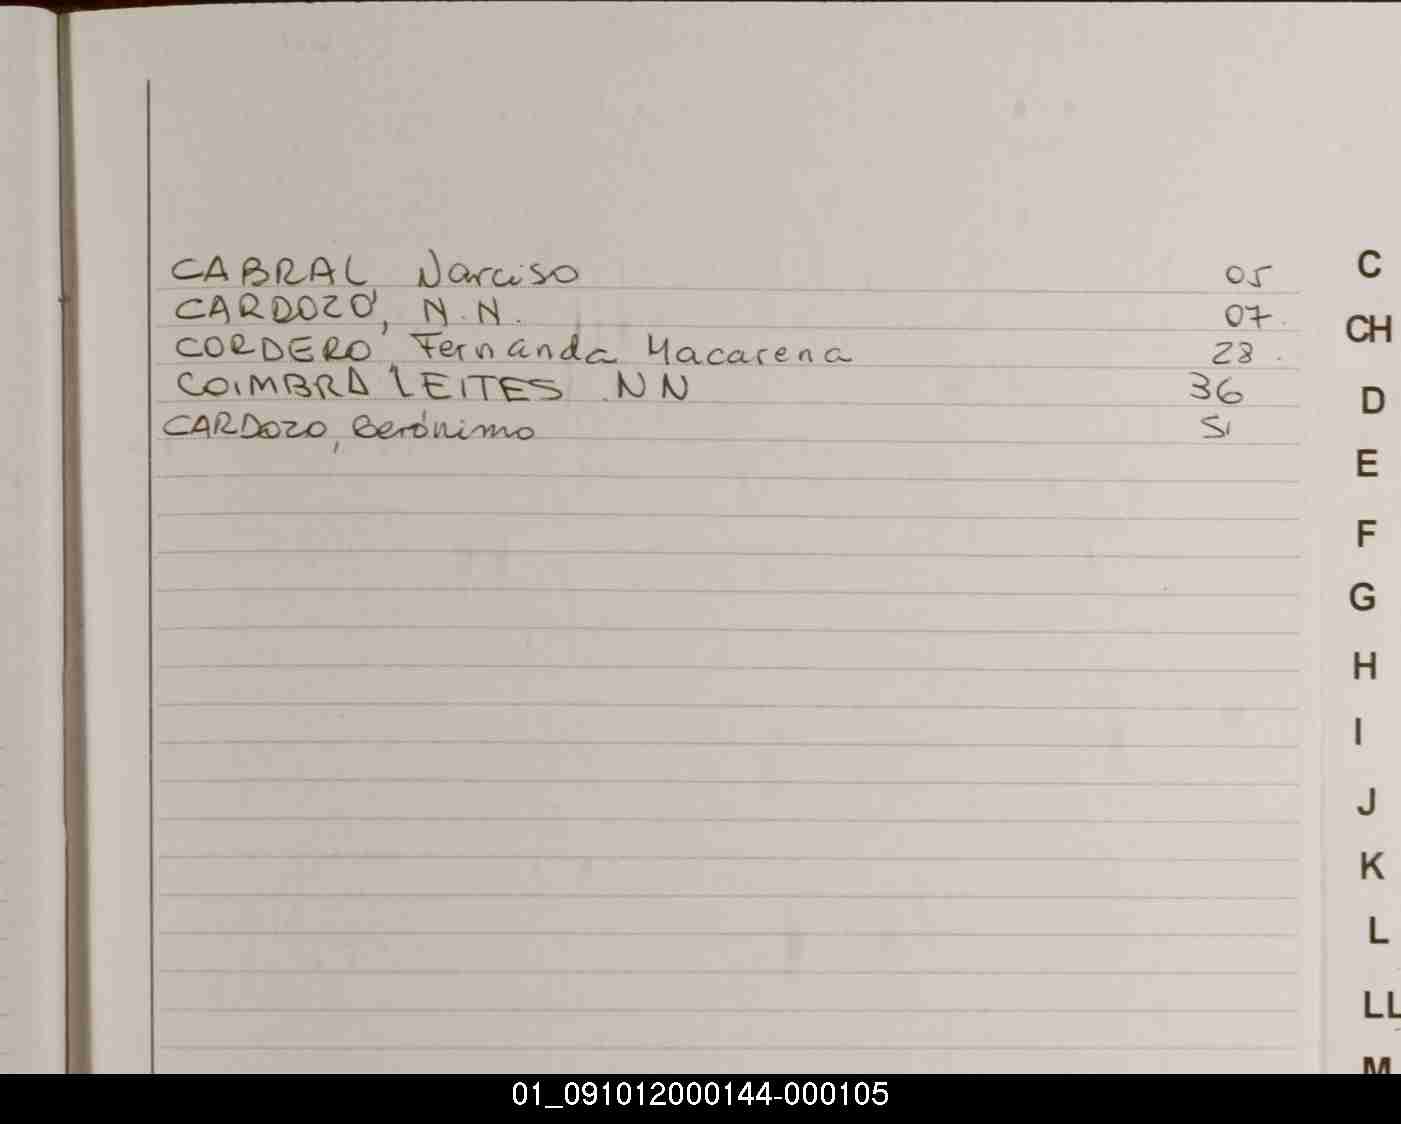 CABRAL, Narciso 05
CARDOZO, N.N. 07.
CORDERO, Fernanda Macarena 28.
COIMBRA LEITES NN 36
CARDOZO, Gerónimo 51
C
CH
D
E
F
G
H
I
J
K
L
LL
M
01_091012000144-000105